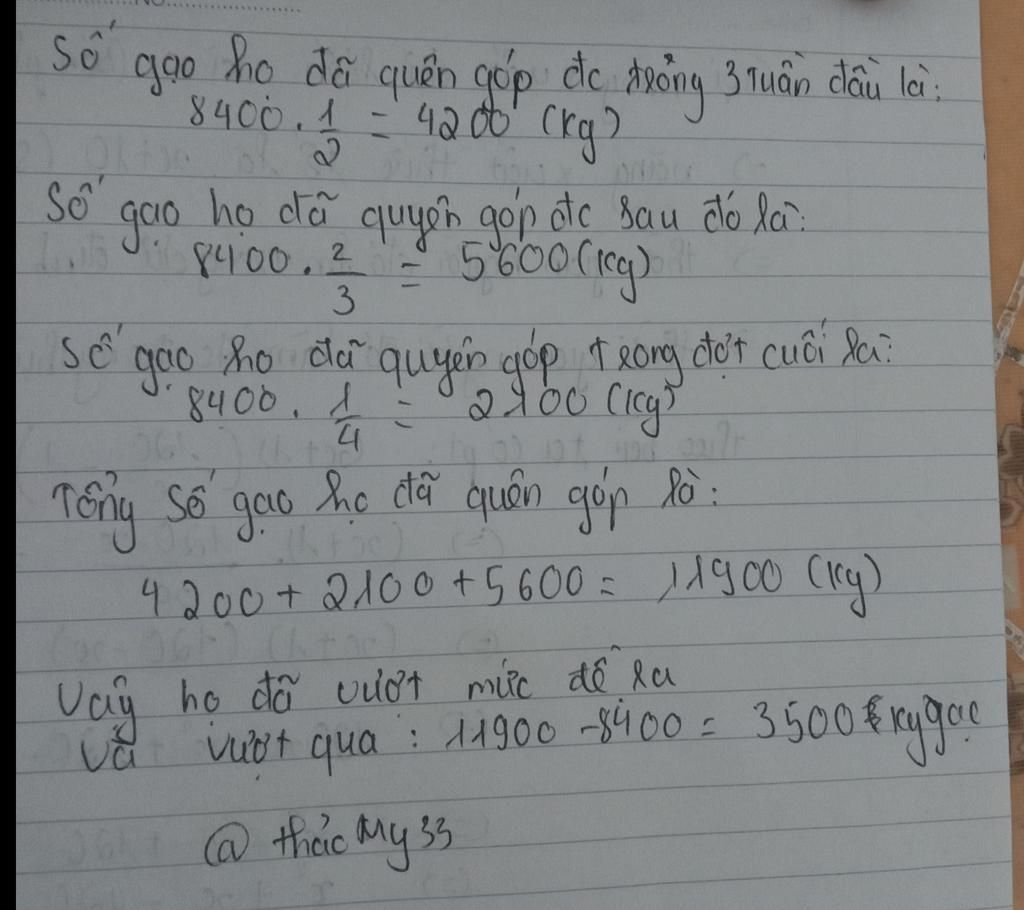 Số gạo họ đã quên góp đc trong 3 tuần đầu là:
8400 . 1/2 = 4200 (kg)
Số gạo họ đã quyên góp đc sau đó là:
8400 . 2/3 = 5600 (kg)
Số gạo họ đã quyên góp trong đợt cuối là:
8400 . 1/4 = 2100 (kg)
Tổng số gạo họ đã quên góp là:
4200 + 2100 + 5600 = 11900 (kg)
Vậy họ đã vượt mức đề ra
và vượt qua : 11900 - 8400 = 3500 kg gạo
@ thảo My 33